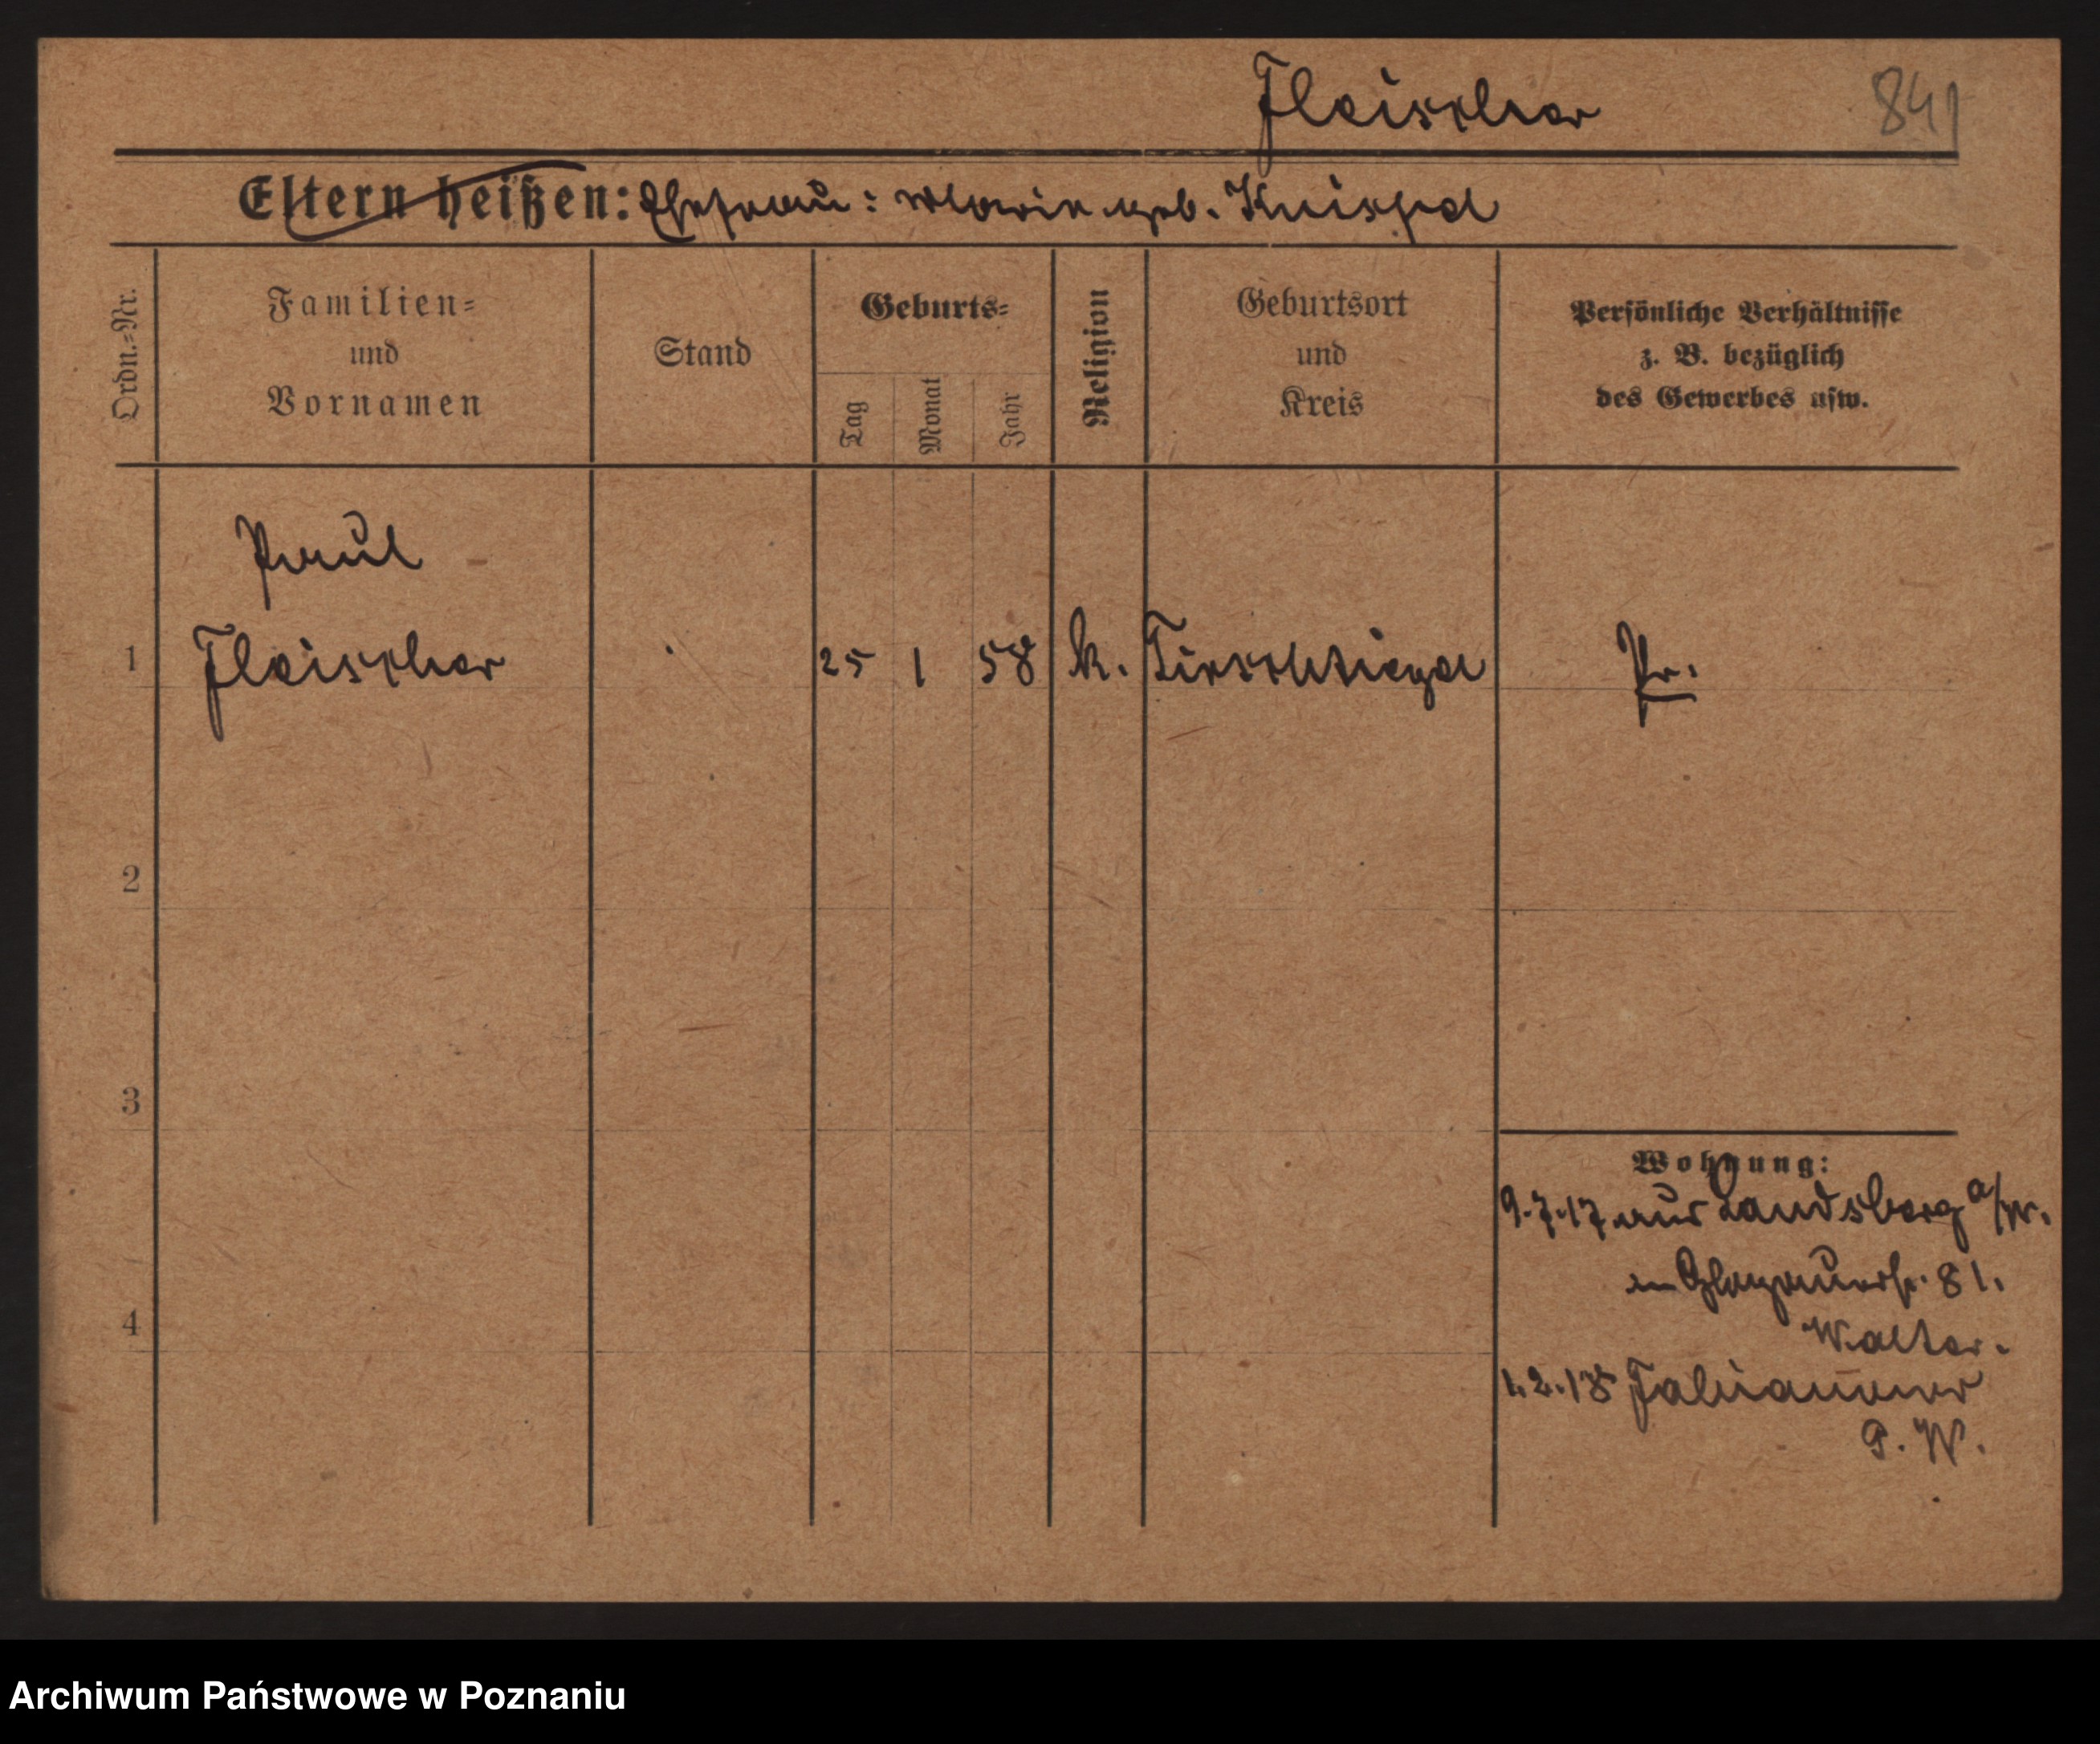 Fleischer 841
Eltern heißen: Ehefrau: Marie geb. Knispel
Ordn.-Nr.
Familien-
und
Vornamen
Stand
Geburts-
Tag
Monat
Jahr
Religion
Geburtsort
und
Kreis
Persönliche Verhältnisse
z. B. bezüglich
des Gewerbes usw.
Paul
1 Fleischer 25 1 58 k. Tirschtiegel Pr.
2
3
4
Wohnung:
9.7.17 aus Landsberg a/W.
Glogauerstr. 81.
Walter.
1.2.18
P. W.
Archiwum Państwowe w Poznaniu